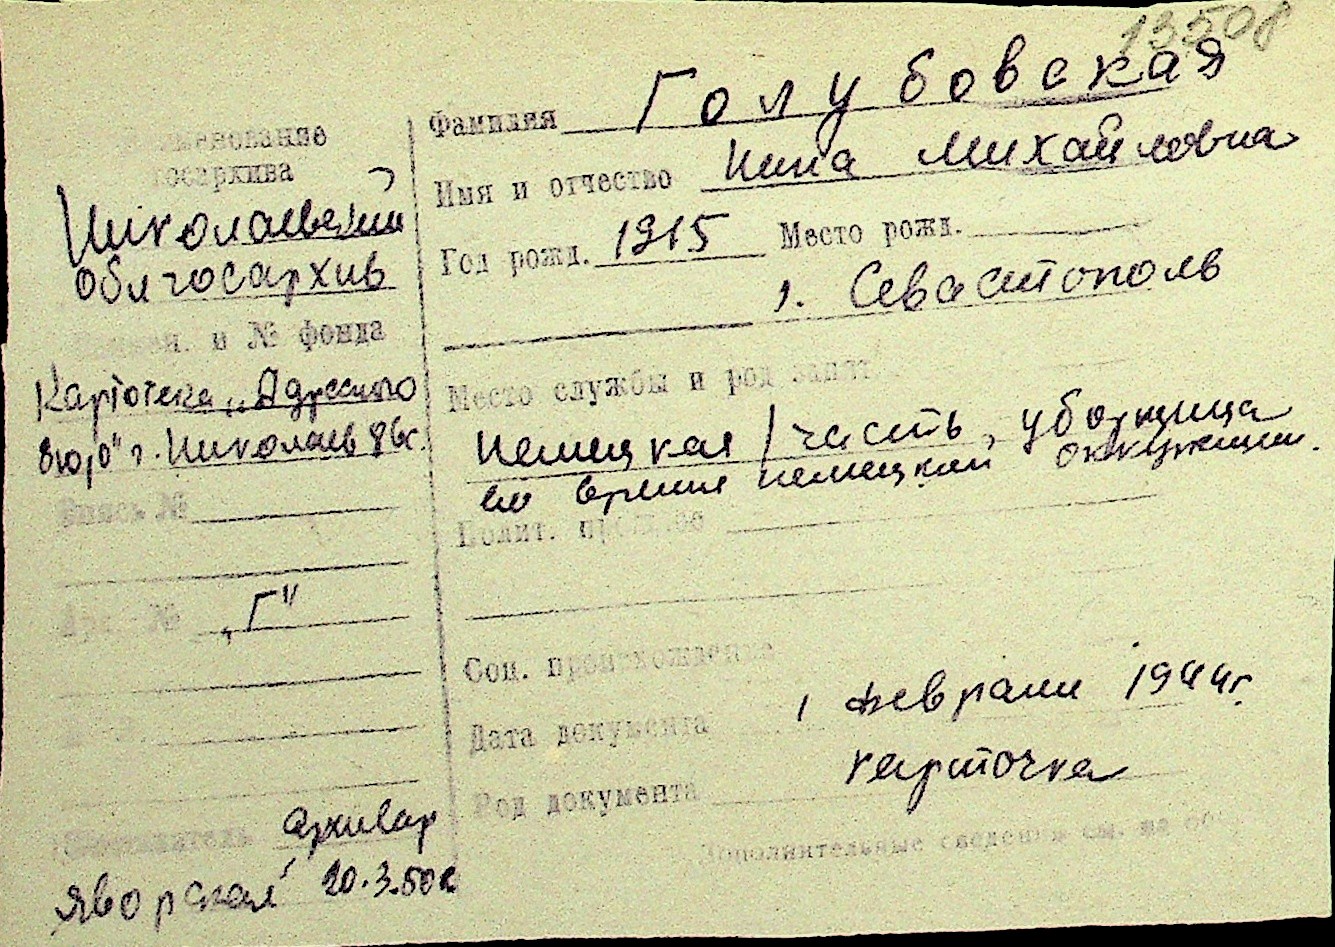 13508
Наименование
госархива
Николаевский
облгосархив
Наимен. и № фонда
Картотека „Адресного
бюро" г. Николаев
Опись №
„Г"
Составитель архивар
Яворская 20.3.50г
Фамилия Голубовская
Имя и отчество Нина Михайловна
Год рожд. 1915 Место рожд.
г. Севастополь
Место службы и род занят.
немецкая часть, уборщица
во время немецкой оккупации.
Полит. прошлое
Соц. происхождение
Дата документа 1 февраля 1944г.
Род документа карточка
Дополнительные сведения см. на об